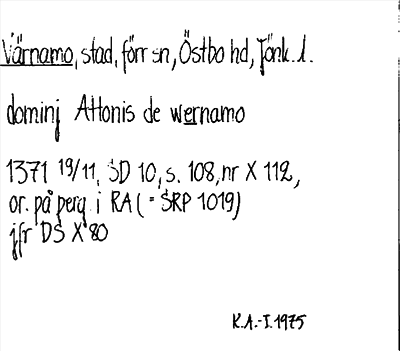 Värnamo, stad, förr sn, Östbo hd, Jönk. l.
dominj Attonis de wernamo
1371 19/11, SD 10, s. 108, nr X 112,
or. på perg i RA (= SRP 1019)
jfr DS X 80
K.A.-I. 1975